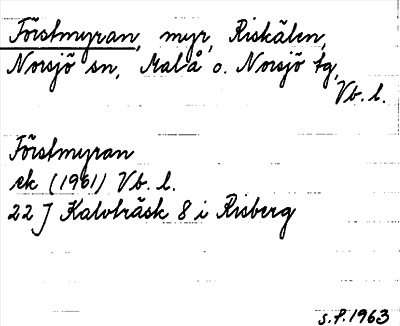 Förstmyran, myr, Riskälen,
Norsjö sn, Malå o. Norsjö tg,
Vb. l.
Förstmyran
ek (1961) Vb. l.
22 J Kalvträsk 8 i Risberg
s.f. 1963